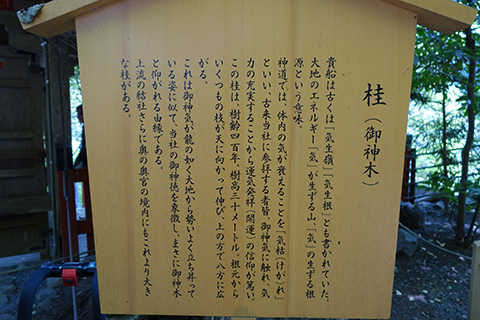 桂（御神木）
貴船は古くは「気生嶺」「気生根」とも書かれていた。
大地のエネルギー「気」が生ずる山、「気」の生ずる根
源という意味。
神道では、体内の気が衰えることを「気枯（けが）れ」
といい、古来当社に参拝する者皆、御神気に触れ、気
力の充実することから運気発祥（開運）の信仰が篤い。
この桂は、樹齢四百年、樹高三十メートル、根元から
いくつもの枝が天に向かって伸び、上の方で八方に広
がる。
これは御神気が龍の如く大地から勢いよく立ち昇って
いる姿に似て、当社の御神徳を象徴し、まさに御神木
と仰がれる由縁である。
上流の結社さらに奥の奥宮の境内にもこれより大き
な桂がある。